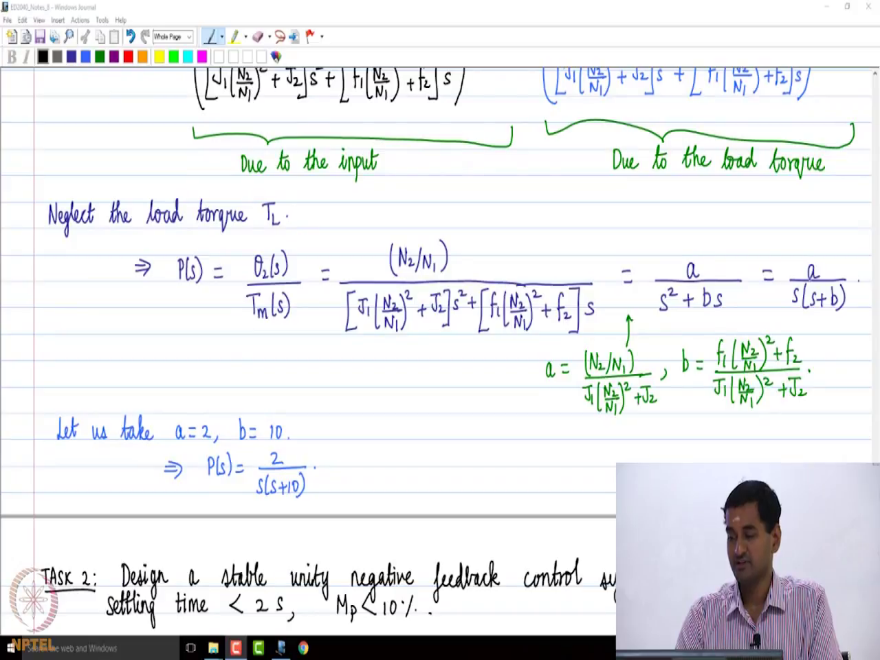 ED2040_Notes_8 - Windows Journal
File Edit View Insert Actions Tools Help
Whole Page
B I
([J₁(N₂/N₁)² + J₂]s² + [f₁(N₂/N₁)² + f₂]s) ([J₁(N₂/N₁)² + J₂]s² + [f₁(N₂/N₁)² + f₂]s)
Due to the input Due to the load torque
Neglect the load torque T_L.
⇒ P(s) = θ₂(s)/T_m(s) = (N₂/N₁)/([J₁(N₂/N₁)² + J₂]s² + [f₁(N₂/N₁)² + f₂]s) = a/(s² + bs) = a/(s(s+b)).
a = (N₂/N₁)/(J₁(N₂/N₁)² + J₂), b = (f₁(N₂/N₁)² + f₂)/(J₁(N₂/N₁)² + J₂).
Let us take a=2, b= 10.
⇒ P(s) = 2/(s(s+10)).
TASK 2: Design a stable unity negative feedback control
settling time < 2 s, Mp < 10%.
NPTEL
the web and Windows